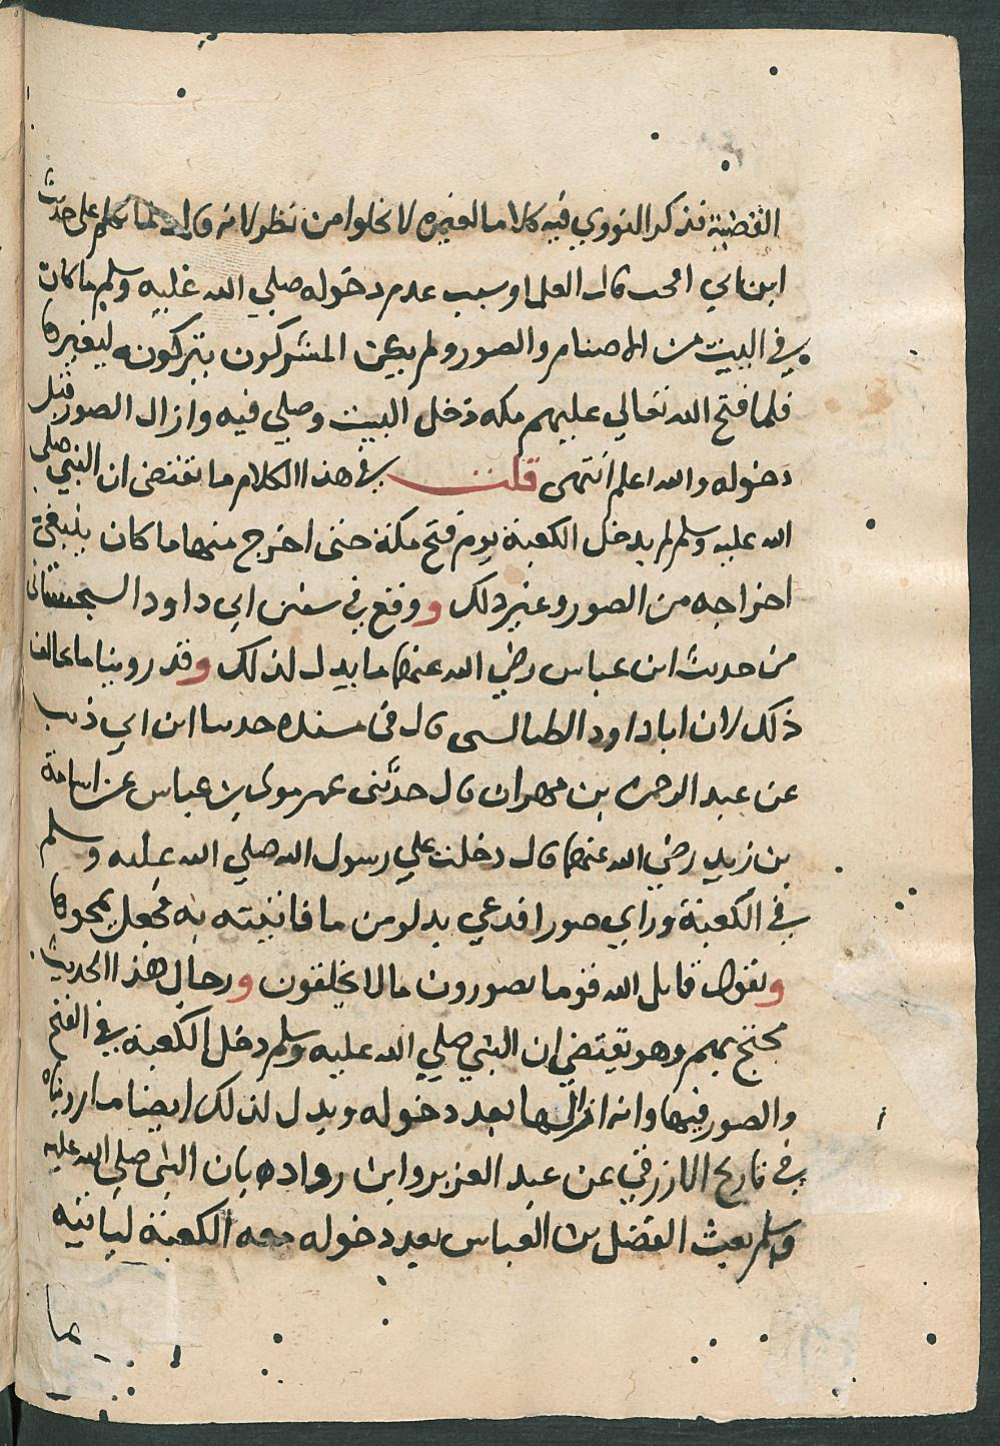 القضية فذكر النووي فيه كلاما لغيره لا يخلوا من نظر لانه قال لما تكلم على حديث
ابن ابي قال العلما وسبب عدم دخوله صلي الله عليه وسلم ما كان
في البيت من الاصنام والصور ولم يكن المشركون يتركونه ليغيرها
فلما فتح الله تعالي عليهم مكه دخل البيت وصلي فيه وازال الصور قبل
دخوله والله اعلم انتهى قلت في هذا الكلام ما تقتضى ان النبي صلى
الله عليه وسلم لم يدخل الكعبة يوم فتح مكة حتى اخرج منها ما كان ينبغي
اخراجه من الصور وغير ذلك و ووقع في سنن ابي داود السجستانى
من حديث ابن عباس رضي الله عنهما ما يدل لذلك وقد روينا ما يخالف
ذلك لان ابا داود الطيالسى قال في مسنده حدسا ابن ابي ذيب
عن عبد الرحمن بن مهران قال حدثنى عمير مولى بن عباس عن اسامة
بن زيد رضي الله عنهما قال دخلت علي رسول الله صلي الله عليه وسلم
في الكعبة وراي صورا فدعي بدلو من ما فاتيته به فجعل يمحوها
ويقول قاتل الله قوما يصورون ما لا يخلقون ورجال هذا الحديث
محتج بهم وهو يقتضي ان النبي صلي الله عليه وسلم دخل الكعبة في الفتح
والصور فيها وانه ازالها بعد دخوله ويدل لذلك ايضا ما رويناه
في تاريخ الازرقي عن عبد العزيز وابن رواده بان النبى صلي الله عليه
وسلم بعث الفضل بن العباس بعد دخوله معه الكعبة لياتيه
بما